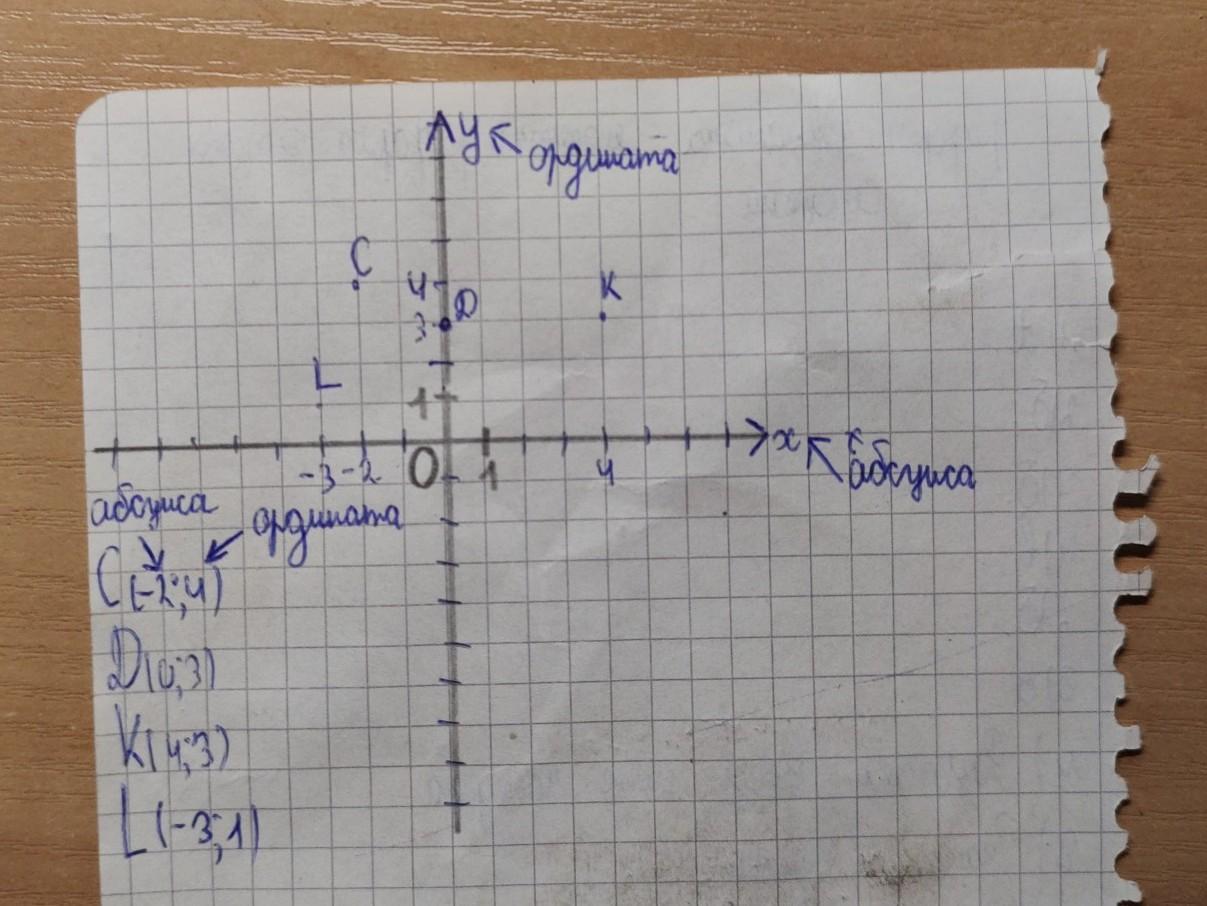 y ордината
C
4 D K
3
L
1
x абсциса
-3 -2 0 1 4
абсциса ордината
C(-2;4)
D(0;3)
K(4;3)
L(-3;1)